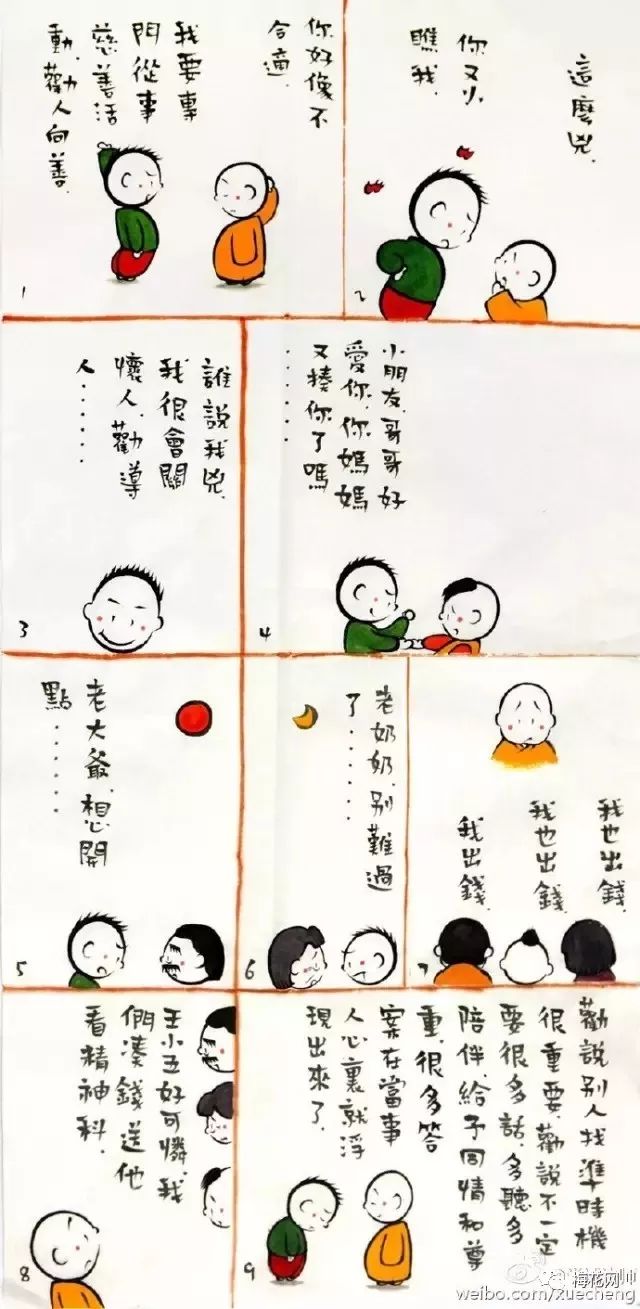 我要專
門從事
慈善活
動，勸人向善。
你好像不
合適.
1
你又小
瞧我.
這麼兇.
2
誰說我兇.
我很會關
懷人，勸導
人......
3
小朋友，哥哥好
愛你，你媽媽
又揍你了嗎
......
4
老大爺，想開
點......
5
老奶奶，别難過
了......
6
我出錢.
我也出錢.
我也出錢.
7
王小五好可憐，我
們湊錢送他
看精神科.
8
勸說别人找準時機
很重要，勸說不一定
要很多話，多聽多
陪伴，給予同情和尊
重，很多答
案在當事
人心裏就浮
現出來了.
9
梅花网
weibo.com/xuecheng